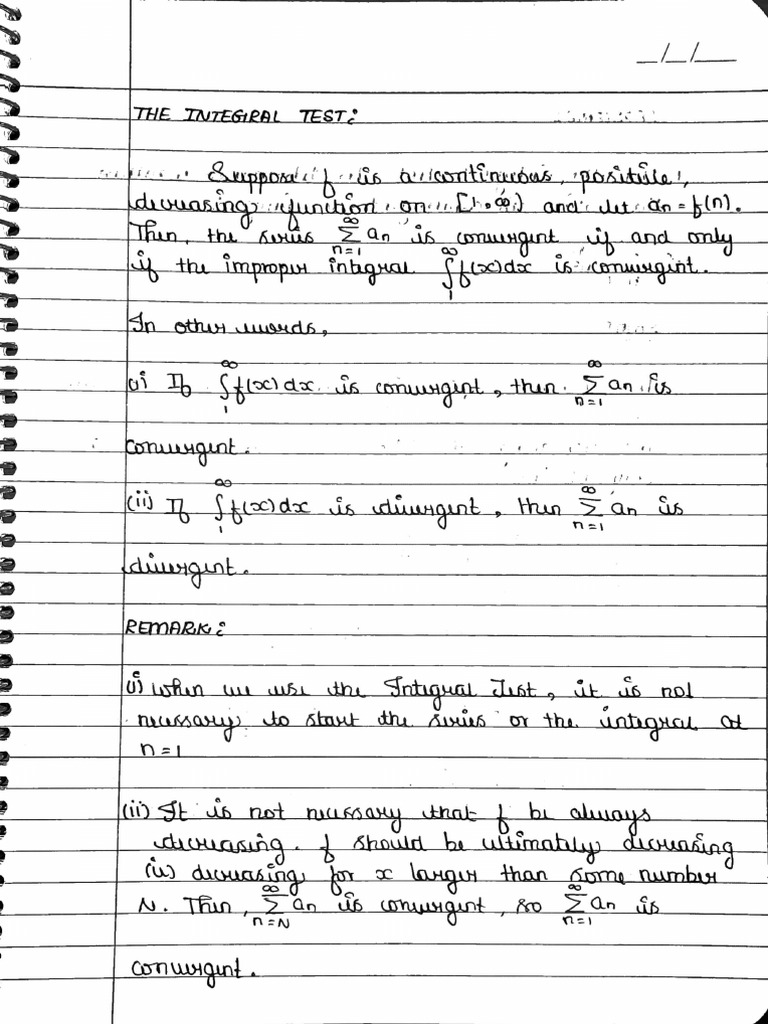 _/_/_
THE INTEGRAL TEST:
Suppose f is a continuous, positive,
decreasing function on [1, ∞) and let an = f(n).
Then, the series ∞Σn=1 an is convergent if and only
if the improper integral ∞∫1 f(x)dx is convergent.
In other words,
(i) If ∞∫1 f(x)dx is convergent, then ∞Σn=1 an is
convergent.
(ii) If ∞∫1 f(x)dx is divergent, then ∞Σn=1 an is
divergent.
REMARK:
(i) When we use the Integral Test, it is not
necessary to start the series or the integral at
n=1
(ii) It is not necessary that f be always
decreasing. f should be ultimately decreasing
(ie) decreasing for x larger than some number
N. Then, ∞Σn=N an is convergent, so ∞Σn=1 an is
convergent.